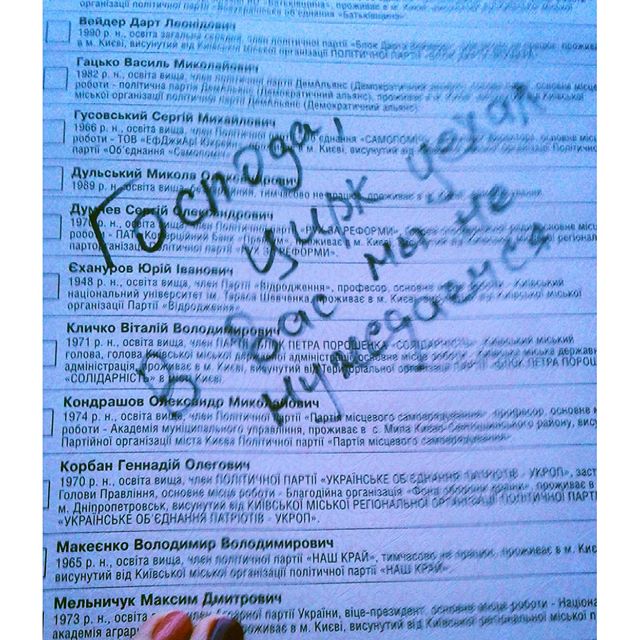 Вейдер Дарт Леонідович
1990 р. н., освіта загальна середня, член політичної партії «Блок Дарта
в м. Києві, висунутий від Київської міської організації ПОЛІТИЧНОЇ ПАРТІЇ «БЛОК ДАРТА ВЕЙДЕРА»
Гацько Василь Миколайович
1982 р. н., освіта вища, член політичної партії ДемАльянс (Демократичний альянс),
роботи - політична партія ДемАльянс (Демократичний альянс), проживає в м. Києві, висунутий від Київської
міської організації політичної партії ДемАльянс (Демократичний альянс).
Гусовський Сергій Михайлович
1966 р. н., освіта вища, член політичної партії «Об'єднання «САМОПОМІЧ»,
роботи - ТОВ «ЕфДжиАрІ проживає в м. Києві, висунутий від
партії «Об'єднання «Самопоміч».
Дульський Микола
1989 р. н., тимчасово не працює, проживає в м. Києві,
Думчев Сергій Олександрович
РЕФОРМИ»,
роботи - ПАТ проживає в м. Києві,
РЕФОРМИ».
Єхануров Юрій Іванович
1948 р. н., освіта вища, член Партії «Відродження», професор, основне місце роботи - Київський
національний університет ім. Тараса Шевченка, проживає в м. Києві, висунутий від Київської міської
організації Партії «Відродження».
Кличко Віталій Володимирович
1971 р. н., освіта вища, член ПАРТІЇ «БЛОК ПЕТРА ПОРОШЕНКА «СОЛІДАРНІСТЬ», Київський міський
голова, голова Київської міської державної адміністрації, основне місце роботи - Київська міська державна
адміністрація, проживає в м. Києві, висунутий від Територіальної організації ПАРТІЇ «БЛОК ПЕТРА ПОРОШЕНКА
«СОЛІДАРНІСТЬ» в м. Києві.
Кондрашов Олександр Миколайович
1974 р. н., освіта вища, член Політичної партії «Партія місцевого самоврядування», професор, основне
роботи - Академія муніципального управління, проживає в с. району,
Партійної організації міста Києва Політичної партії «Партія місцевого самоврядування».
Корбан Геннадій Олегович
1970 р. н., освіта вища, член ПОЛІТИЧНОЇ ПАРТІЇ «УКРАЇНСЬКЕ ОБ'ЄДНАННЯ ПАТРІОТІВ - УКРОП»,
Голови Правління, основне місце роботи - Благодійна організація «Фонд оборони країни», проживає в
м. Дніпропетровськ, висунутий від КИЇВСЬКОЇ МІСЬКОЇ РЕГІОНАЛЬНОЇ ОРГАНІЗАЦІЇ ПОЛІТИЧНОЇ ПАРТІЇ
«УКРАЇНСЬКЕ ОБ'ЄДНАННЯ ПАТРІОТІВ - УКРОП».
Макеєнко Володимир Володимирович
1965 р. н., освіта вища, член політичної партії «НАШ КРАЙ», тимчасово не працює, проживає в м. Києві,
висунутий від Київської міської організації політичної партії «НАШ КРАЙ».
Мельничук Максим Дмитрович
1973 р. н., освіта вища, член Аграрної партії України, віце-президент, основне місце роботи - Національна
академія проживає в м. Києві, висунутий від Київської регіональної міської
Господа,
цирк уехал
В вас мы не
нуждаемся